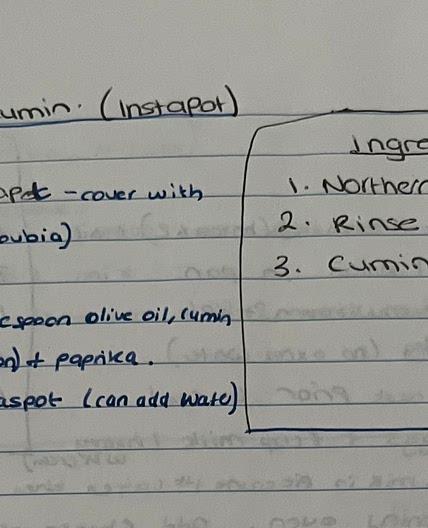 umin. (Instapot)
apot - cover with
oubia)
cspoon olive oil, cumin
on) + paprika.
aspot (can add wate)
Ingre
1. Northern
2. Rinse
3. Cumin